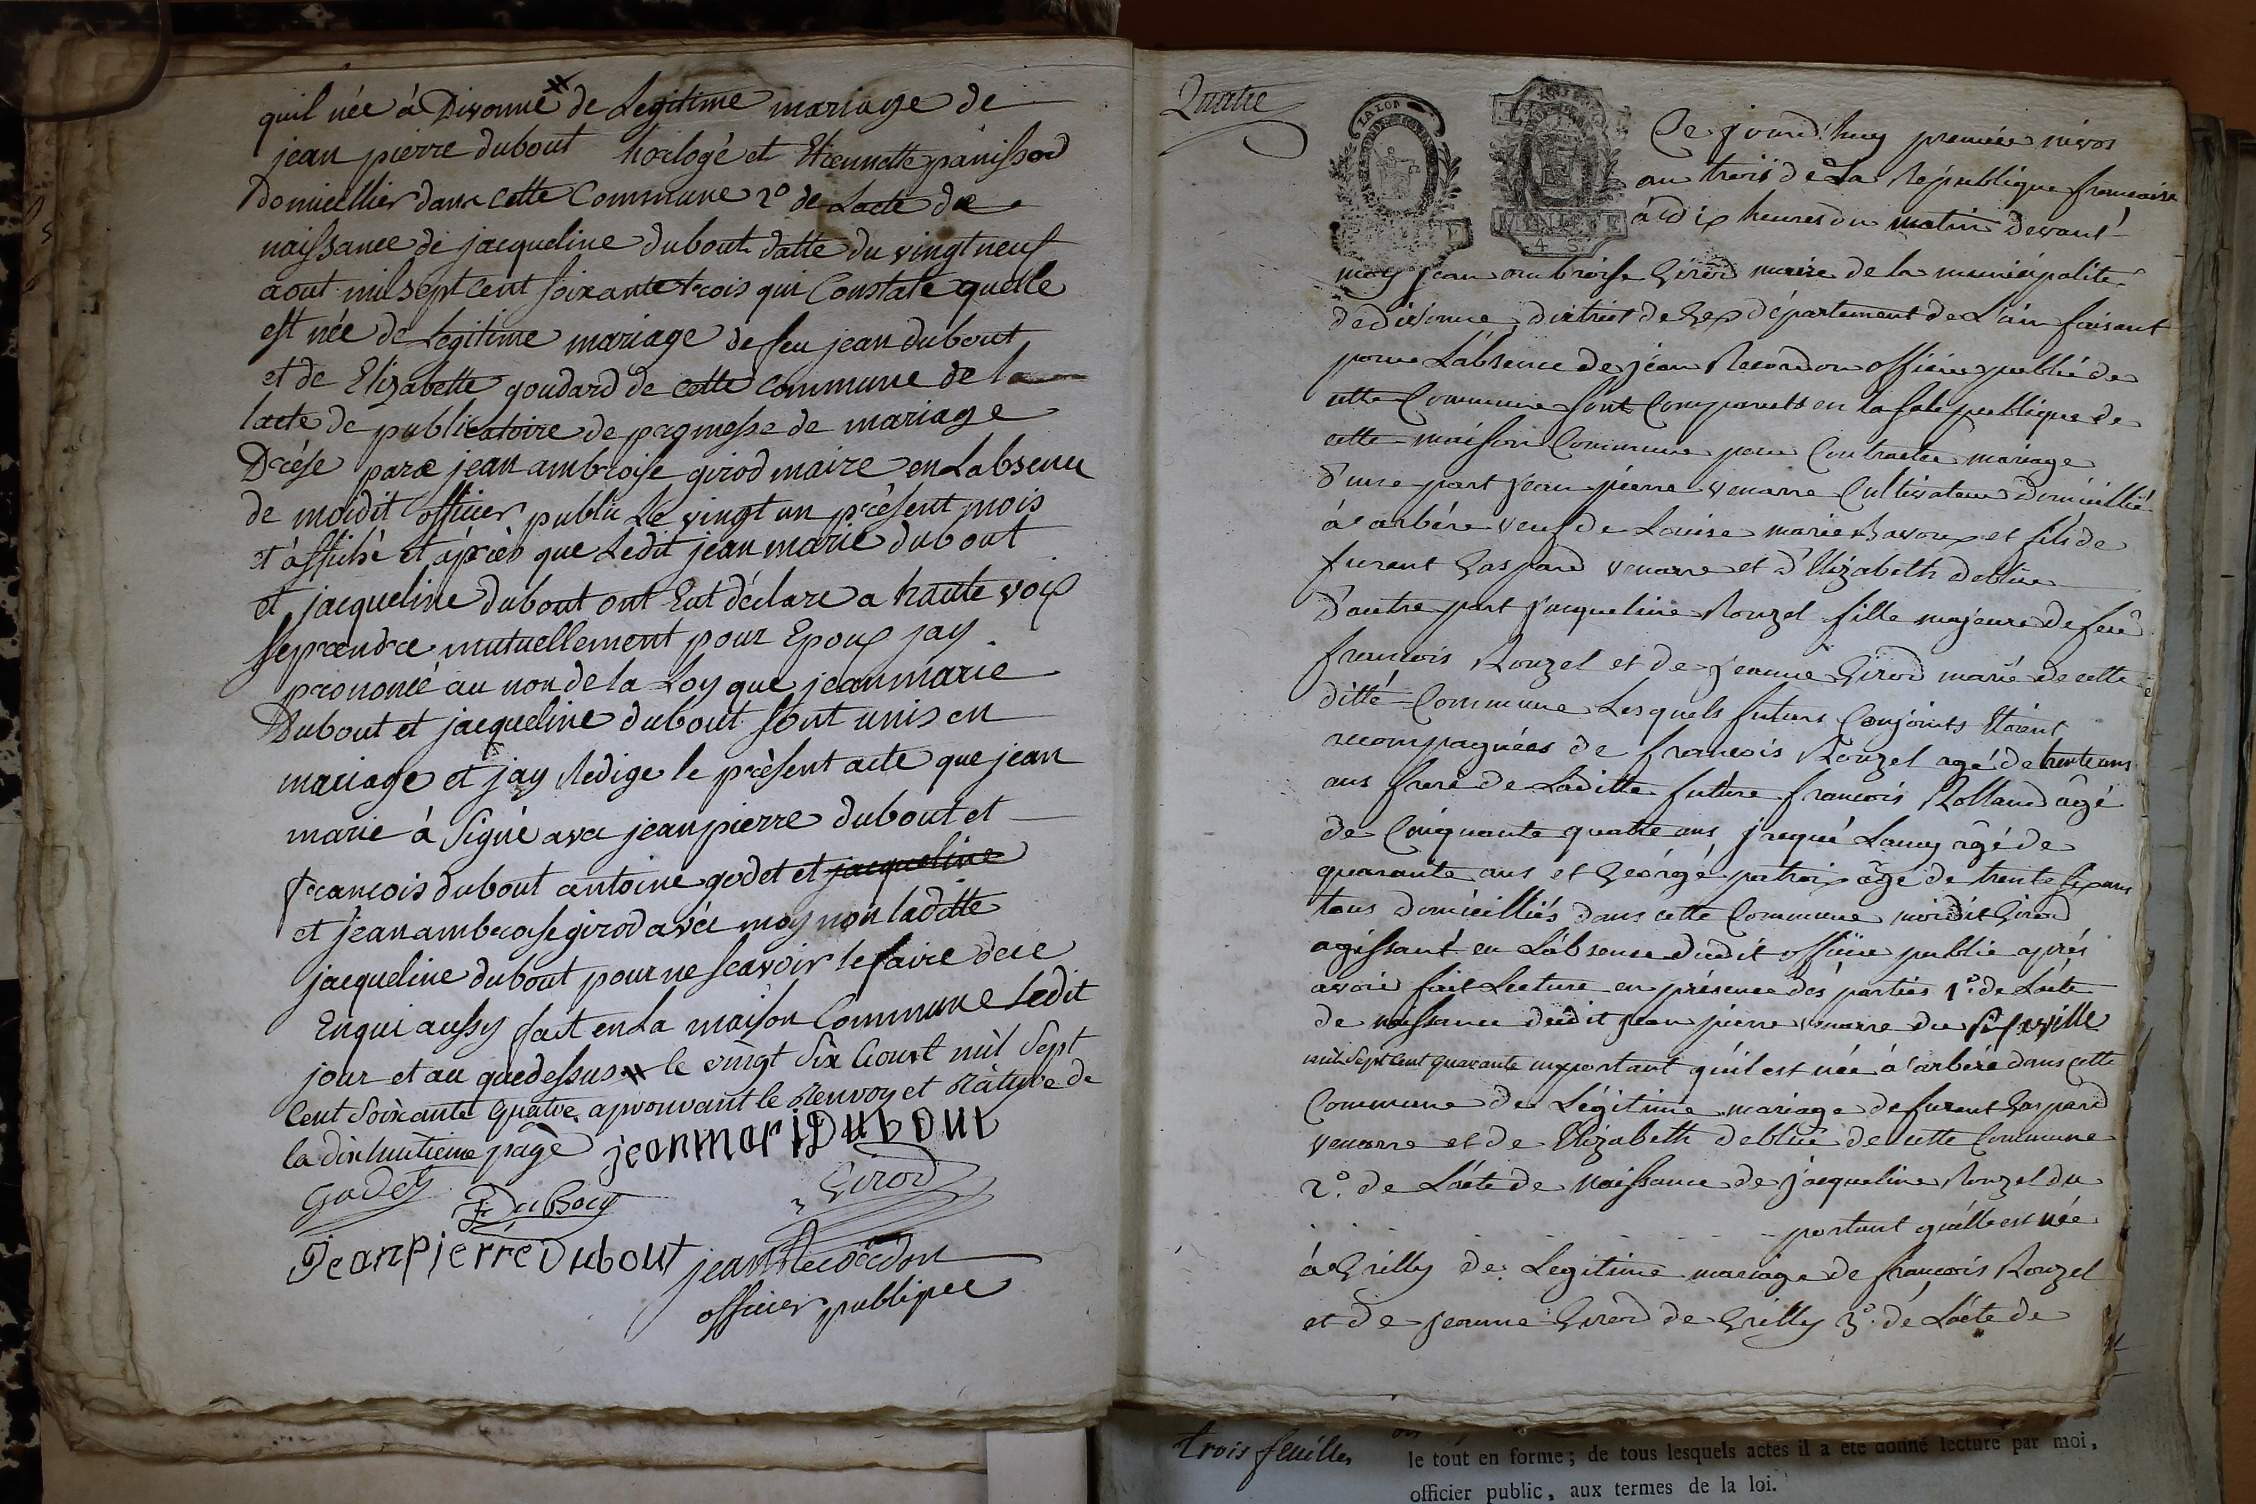 quil née à Divonne # de Legitime mariage de
jean pierre dubout horlogé et Etiennette panissod
Domicillier dans cette Commune 2° de Lacte de
naissance de jacqueline dubout datte du vingt neuf
aout mil sept cent soixante trois qui Constate quelle
est née de Legitime mariage de feu jean dubout
et de Elizabette goudard de cette commune de la
lacte de publicatoire de promesse de mariage
Drése par jean ambroise girod maire en Labsence
de moidit officier public Le vingt un présent mois
et affiché et après que Ledit jean marie dubout
et jacqueline dubout ont Eut déclare a haute voix
se prendre mutuellement pour Epoux jay
prononcé au non de la Loy que jean marie
Dubout et jacqueline dubout sont unis en
mariage et jay Redige le présent acte que jean
marie à Signé avec jean pierre dubout et
francois dubout antoine godet et jacqueline
et jean ambroise girod avéc moy non laditte
jacqueline dubout pour ne scavoir le faire de ce
Enqui aussy fait en La maison Commune Ledit
jour et an que dessus # le vingt Six aoust mil Sept
Cent Soixante quatre approuvant le Renvoy et Rature de
la dixhuitieme page jean mari Dubout
Godet F. Dubout Girod
Jean Pierre Dubout jean Recordon
officier publique
Quatre
Ce jourd'huy premiée nivos
an trois de La République francaise
à dix heures du matin devant
moy jean ambroise Girod maire de la municipalité
de divonne district de Gex département de L'ain faisant
pour L'absence de jean Recordon officier public de
cette Commune sont Comparuts en la sale publique de
cette maison Commune pour Contracter mariage
D'une part jean pierre venarre Cultivateur domicillié
à arbére veuf de Louise marie Savoux et fils de
furent Gaspard venarre et d'Elizabeth deblüe
D'autre part jacqueline Rouzel fille majeure de feu
francois Rouzel et de jeanne Girod marié de cette
ditte Commune Lesquels futurs Conjoints Etoient
accompagnées de francois Rouzel agé de trente ans
ans frere de Laditte future francois Rolland âgé
de Cinquante quatre ans, jaque Lamy âgé de
quarante ans et George patroix âgé de trente six ans
tous domicilliés dans cette Commune moidit Girod
agissant en L'absence dudit officier public après
avoir fait Lecture en présence des parties 1°. de L'acte
de naissance dudit jean pierre venarre du
mil Sept Cent quarante un portant qu'il est née à arbére dans cette
Commune de Légitime mariage de furent Gaspard
venarre et de Elizabeth deblüe de cette Commune
2°. de L'acte de Naissance de jacqueline Rouzel du
portant qu'elle est née
à Grilly de Legitime mariage de francois Rouzel
et de jeanne Girod de Grilly 3°. de L'acte de
trois feuilles
le tout en forme; de tous lesquels actes il a été donné lecture par moi,
officier public, aux termes de la loi.